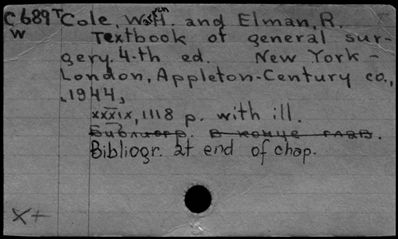 C689T Cole, Warren H. and Elman, R.
W Textbook of general sur-
gery. 4-th ed. New York -
London, Appleton-Century co.,
1944,
xxxix, 1118 p. with ill.
Библиогр. в конце глав.
Bibliogr. at end of chap.
X+